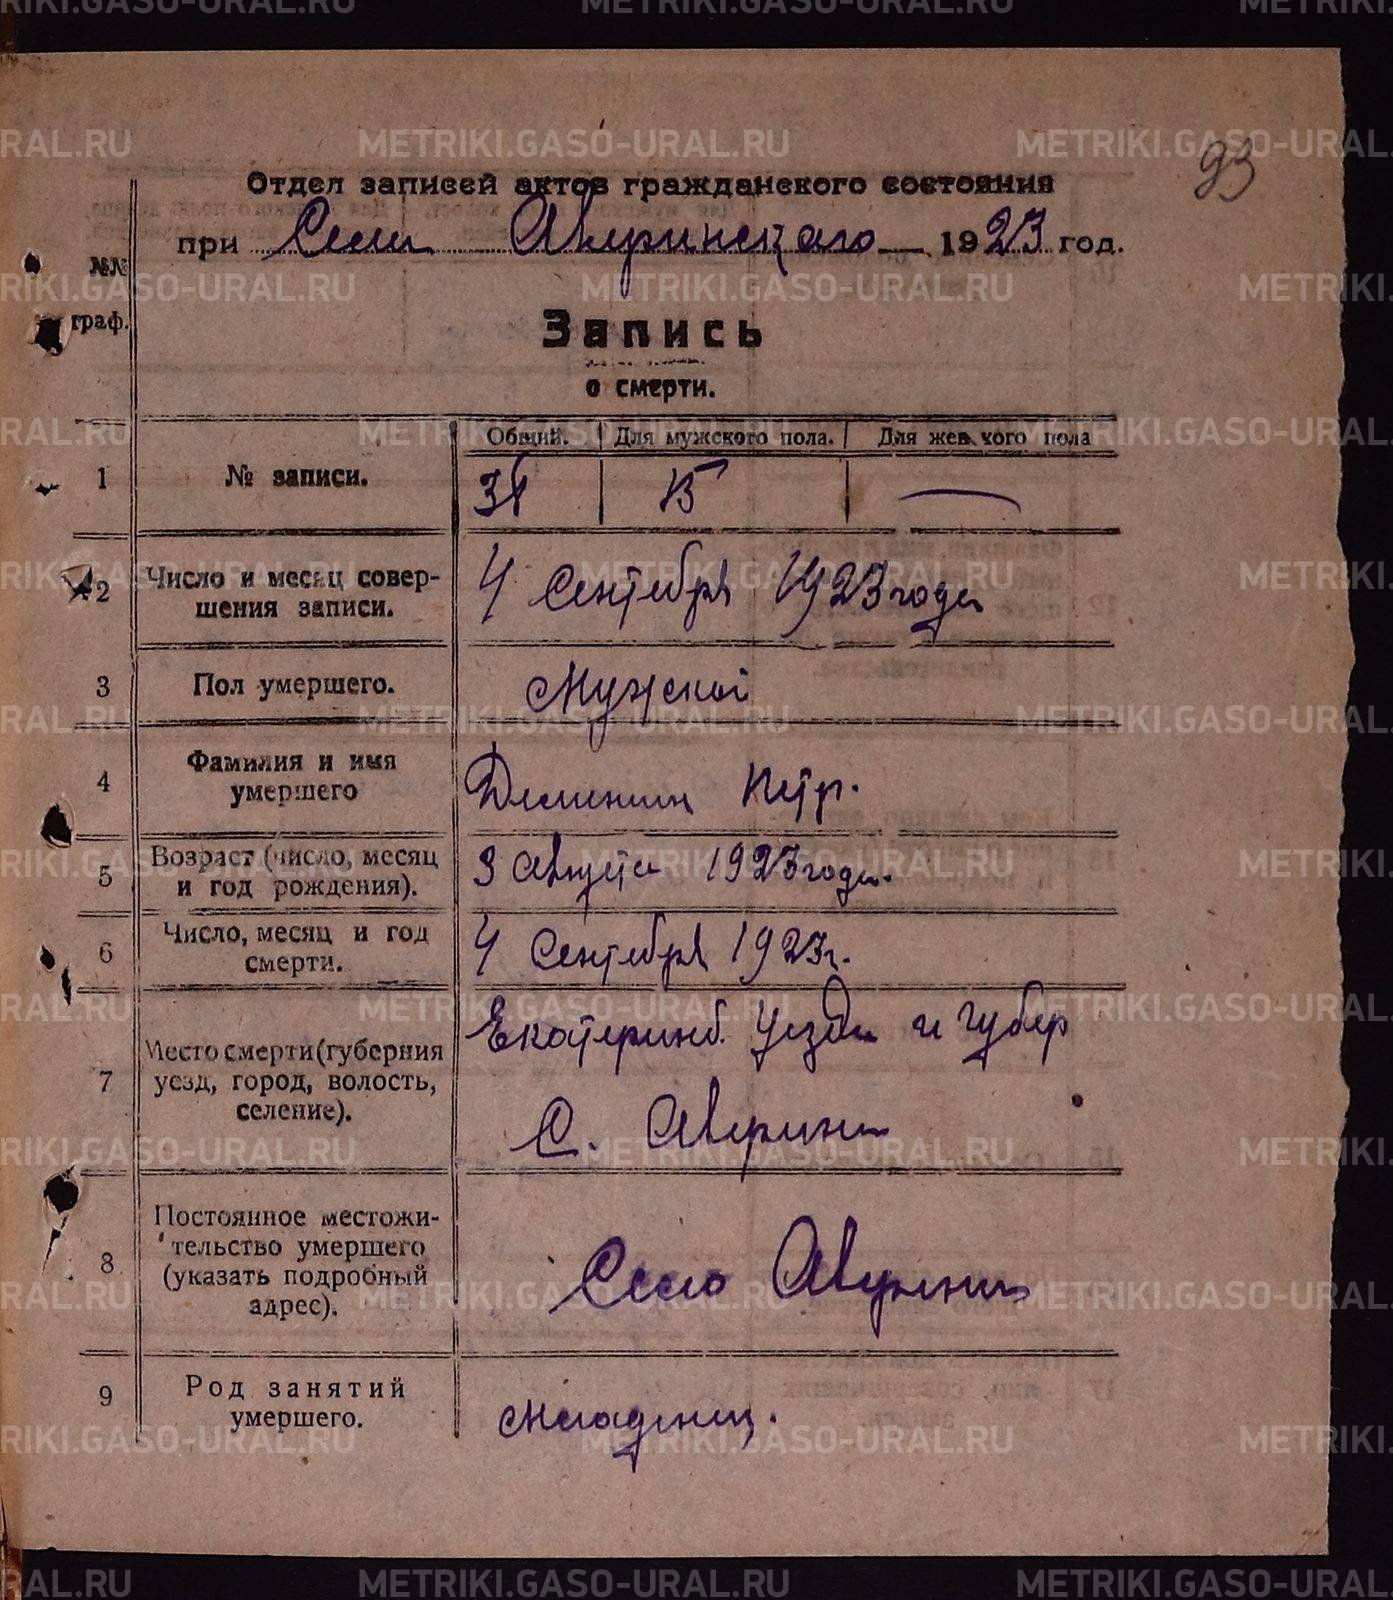 93
Отдел записей актов гражданского состояния
при Селе Аверинского 1923 год.
№№ граф.
Запись
о смерти.
Общий. Для мужского пола. Для женского пола
1 № записи. 31 15 —
2 Число и месяц совершения записи. 4 Сентября 1923 года
3 Пол умершего. Мужской
4 Фамилия и имя умершего Петр.
5 Возраст (число, месяц и год рождения). 3 Августа 1923 года.
6 Число, месяц и год смерти. 4 Сентября 1923 г.
7 Место смерти (губерния уезд, город, волость, селение). Екатеринб. Уезда и губер
С. Аверино
8 Постоянное местожительство умершего (указать подробный адрес). Село Аверино
9 Род занятий умершего. младенец.
METRIKI.GASO-URAL.RU